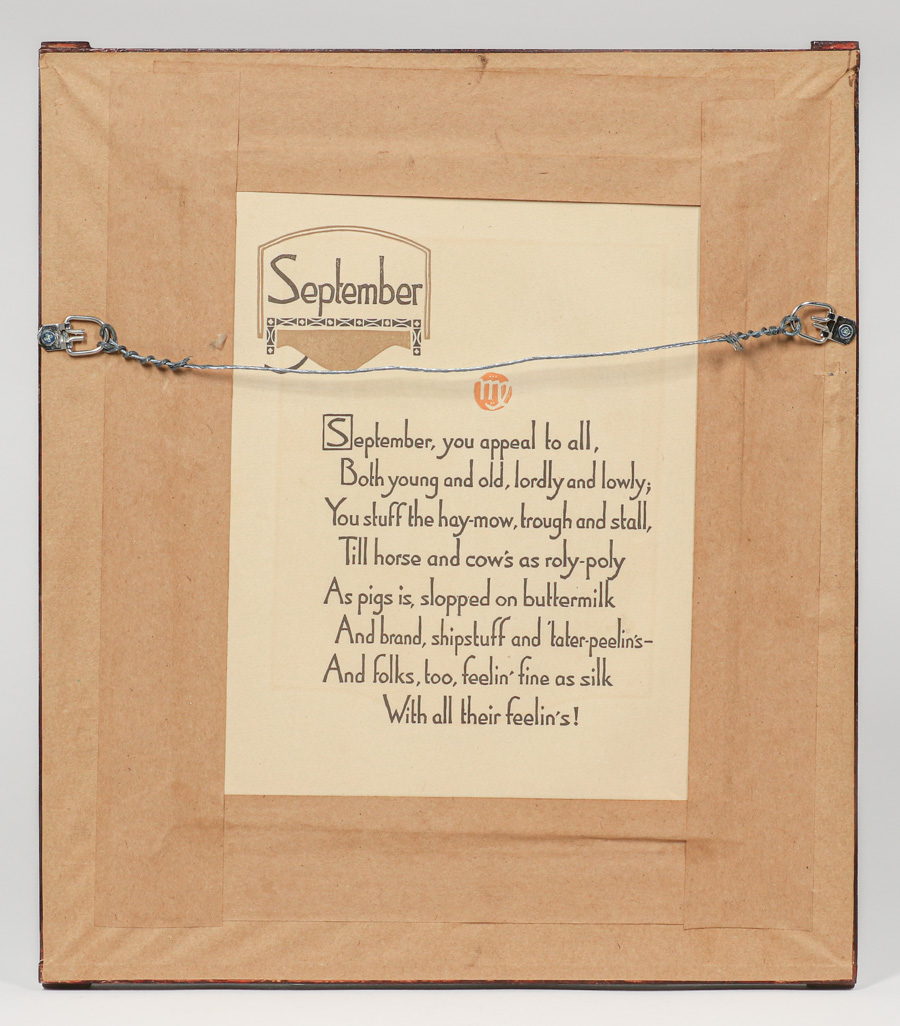 September
September, you appeal to all,
Both young and old, lordly and lowly;
You stuff the hay-mow, trough and stall,
Till horse and cow's as roly-poly
As pigs is, slopped on buttermilk
And brand, shipstuff and 'tater-peelin's–
And folks, too, feelin' fine as silk
With all their feelin's!